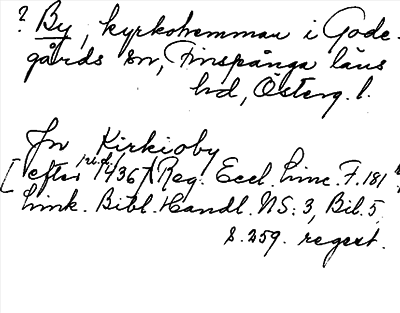 ? By, kyrkohemman i Gode-
gårds sn, Finspånga läns
hd, Österg. l.
Jn Kirkioby
[efter 1436] Reg. Eccl. Linc. F. 181
Link. Bibl. Handl. NS: 3, Bil. 5,
s. 259. regest.